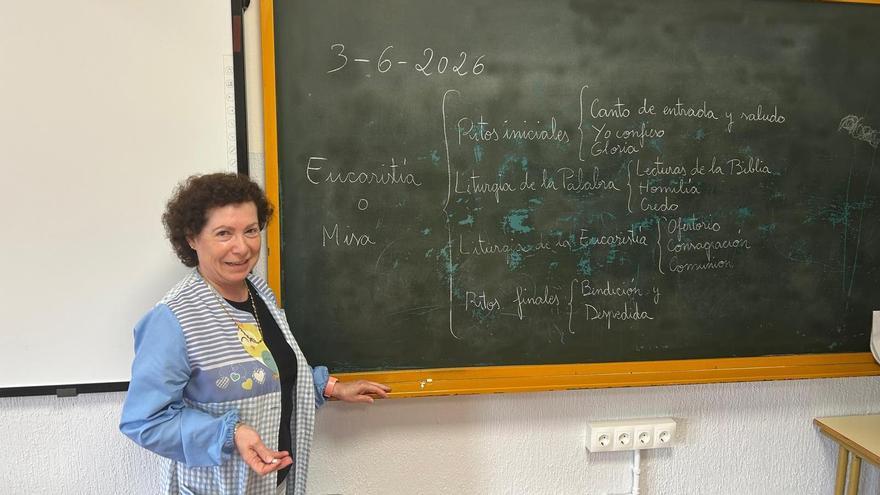 3-6-2026
Eucaristía
o
Misa
Ritos iniciales
Canto de entrada y saludo
Yo confieso
Gloria
Liturgia de la Palabra
Lecturas de la Biblia
Homilía
Credo
Liturgia de la Eucaristía
Ofertorio
Consagración
Comunion
Ritos finales
Bendición y
Despedida